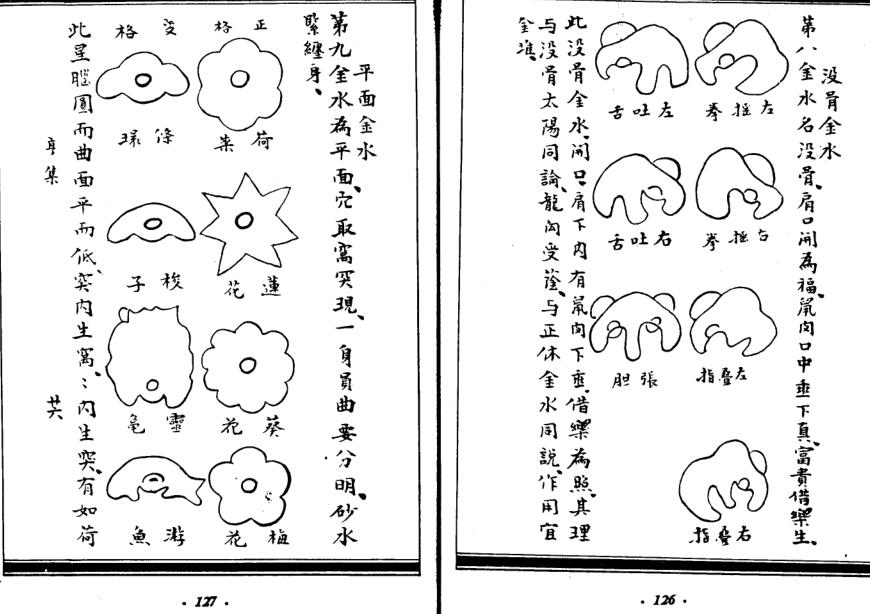 没骨金水
第八金水名没骨、肩口開為福、鼠肉口中垂下真、富貴借樂生、
左搖拳
左吐舌
右搖拳
右吐舌
左叠指
張胆
右叠指
此没骨金水、開口肩下内有鼠肉下垂、借樂為照、其理
与没骨太陽同論、龍肉受蔭、与正体金水同說、作用宜
金准、
· 126 ·
平面金水
第九金水為平面、穴取窩突現、一身員曲要分明、砂水
緊纏身、
正格
変格
荷葉
絛環
蓮花
梭子
葵花
靈龜
梅花
游魚
此星腦圓而曲面平而低、突内生窩、〻内生突、有如荷
亨集
· 127 ·